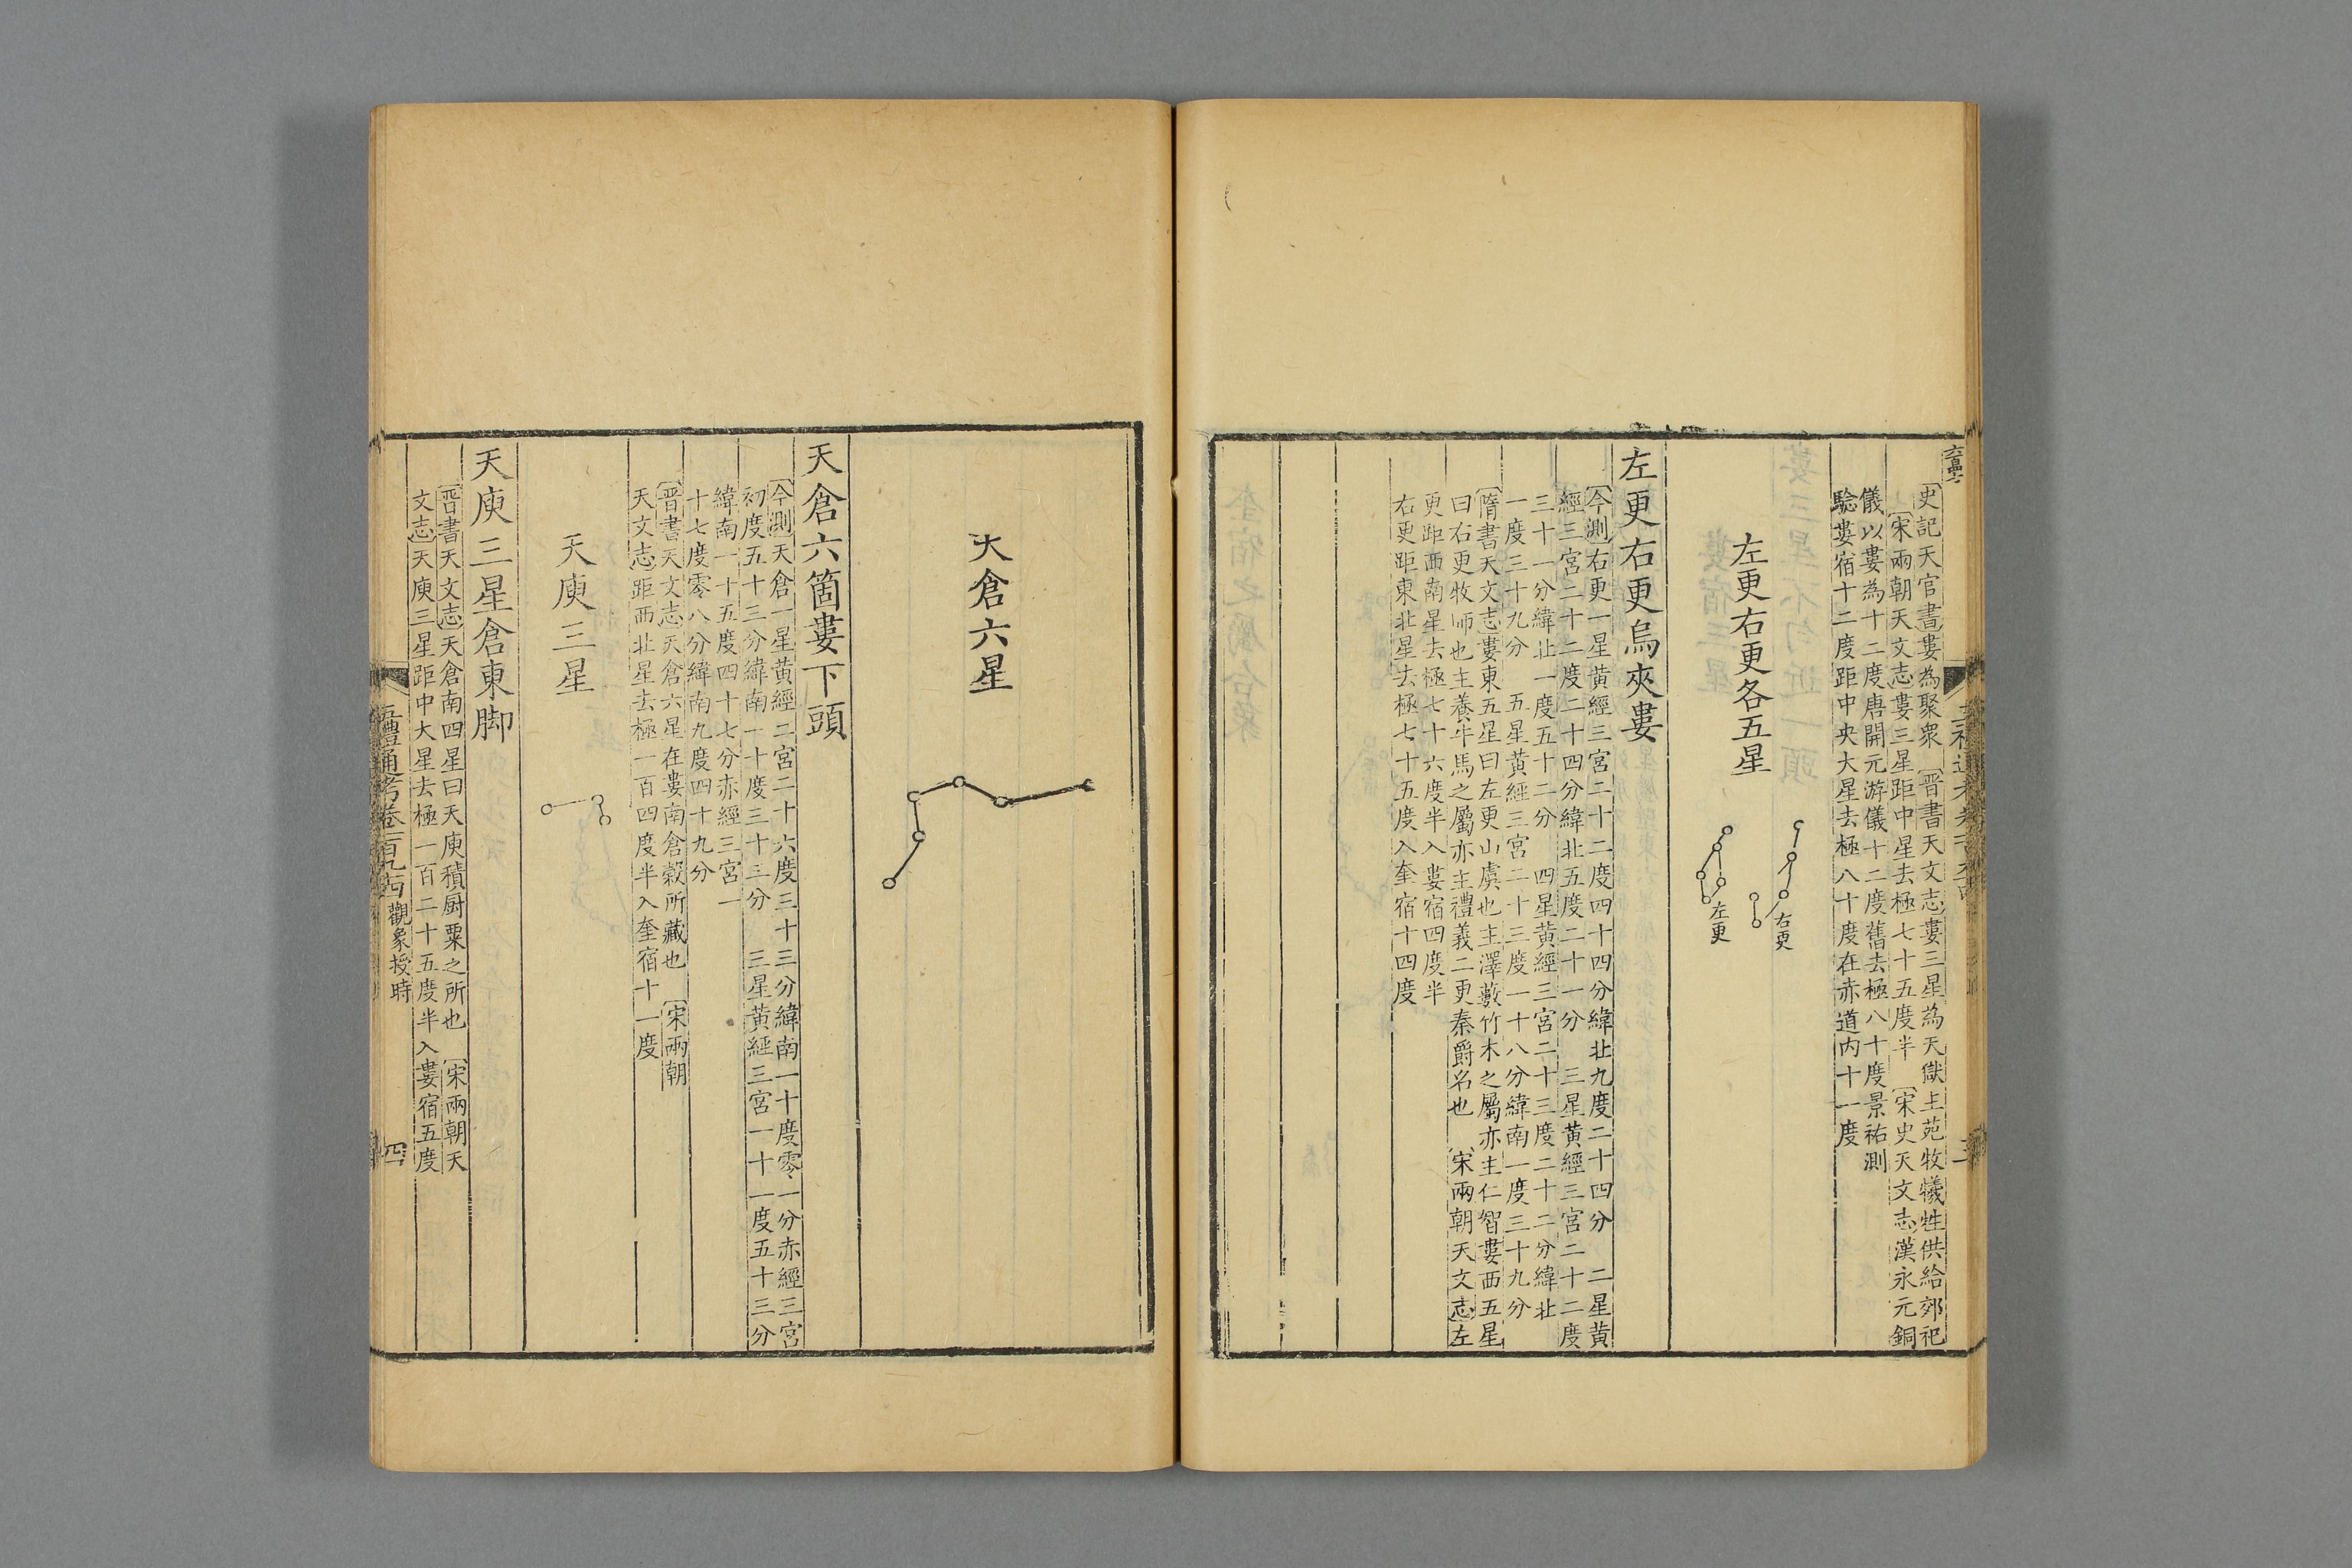 史記天官書婁為聚衆〔晉書天文志〕婁三星為天獄主苑牧犧牲供給郊祀
〔宋兩朝天文志〕婁三星距中星去極七十五度半〔宋史天文志〕漢永元銅
儀以婁為十二度唐開元游儀十二度舊去極八十度景祐測
驗婁宿十二度距中央大星去極八十度在赤道内十一度
左更右更各五星
右更
左更
左更右更烏夾婁
〔今測〕右更一星黃經三宮二十二度四十四分緯北九度二十四分 二星黃
經三宮二十二度二十四分緯北五度二十一分 三星黃經三宮二十二度
三十一分緯北一度五十二分 四星黃經三宮二十三度二十二分緯北
一度三十九分 五星黃經三宮二十三度一十八分緯南一度三十九分
〔隋書天文志〕婁東五星曰左更山虞也主澤藪竹木之屬亦主仁智婁西五星
曰右更牧師也主養牛馬之屬亦主禮義二更秦爵名也〔宋兩朝天文志〕左
更距西南星去極七十六度半入婁宿四度半
右更距東北星去極七十五度入奎宿十四度
天倉六星
天倉六箇婁下頭
〔今測〕天倉一星黃經二宮二十六度三十三分緯南一十度零一分赤經三宮
初度五十三分緯南一十度三十三分 三星黃經三宮一十一度五十三分
緯南一十五度四十七分赤經三宮一
十七度零八分緯南九度四十九分
〔晉書天文志〕天倉六星在婁南倉穀所藏也〔宋兩朝
天文志〕距西北星去極一百四度半入奎宿十一度
天庾三星
天庾三星倉東脚
〔晉書天文志〕天倉南四星曰天庾積厨粟之所也〔宋兩朝天
文志〕天庾三星距中大星去極一百二十五度半入婁宿五度
五禮通考卷一百九十四 觀象授時
四